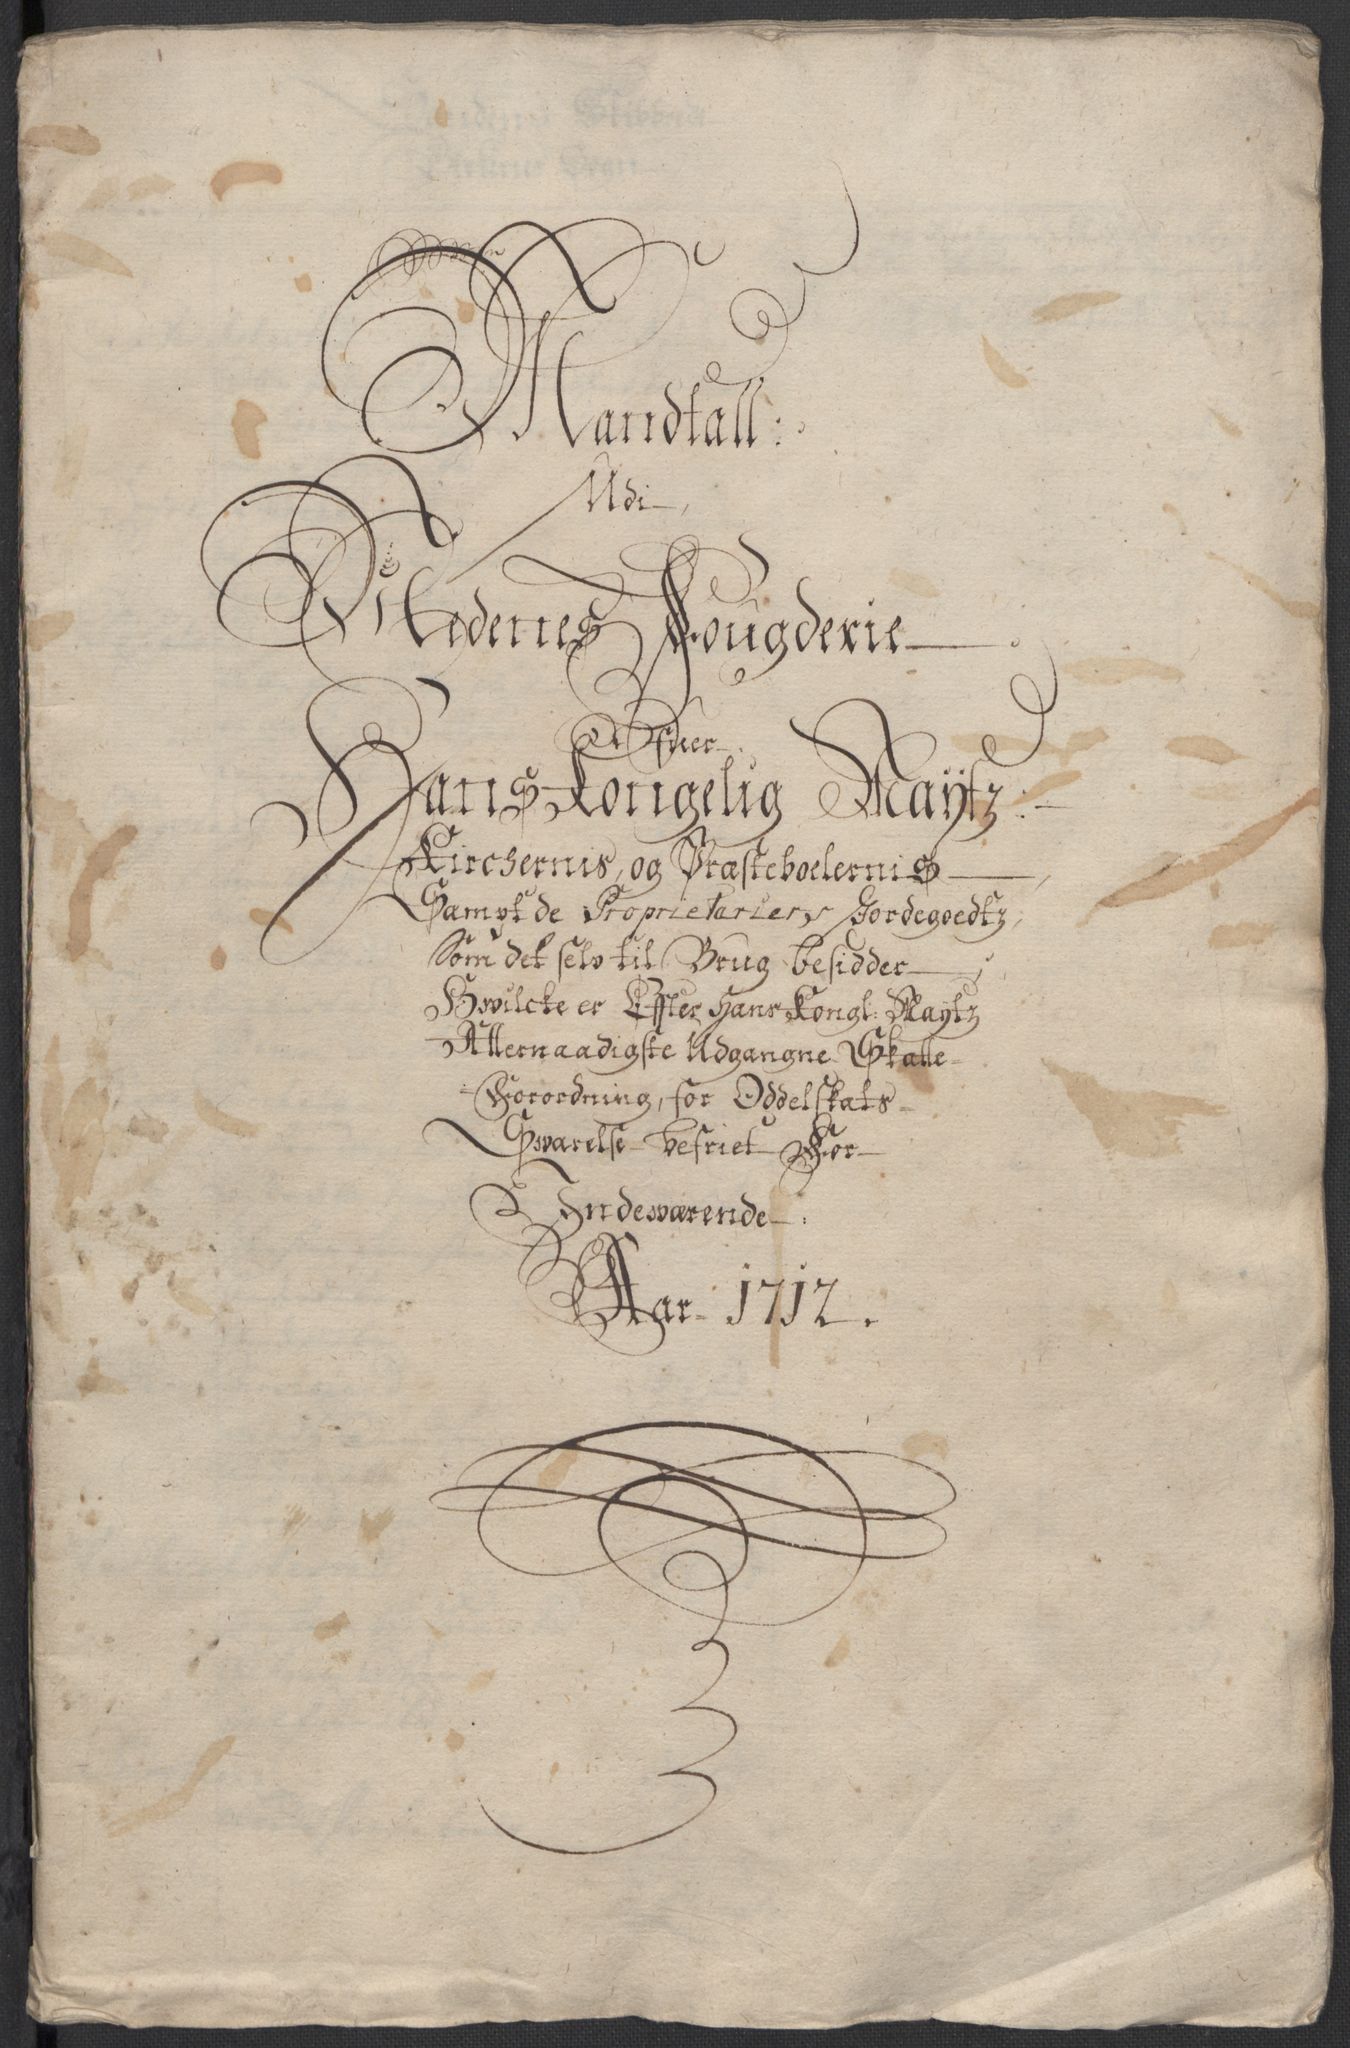 Mandtall:
Udi
Nedenes Fougderie
Ofuer
Hans Kongelig Maytz:
Kirchernis, og Præsteboelernis
Sampt de Proprietariers Jordegoedtz,
Som det selv til Brug besidder
Hvilcke er Effter Hans Kongl: Maytz
Allernaadigste Udgangne Skatte-
Forordning, for Oddelskats
Svarelse befriet For
Indeværende
Aar 1712.